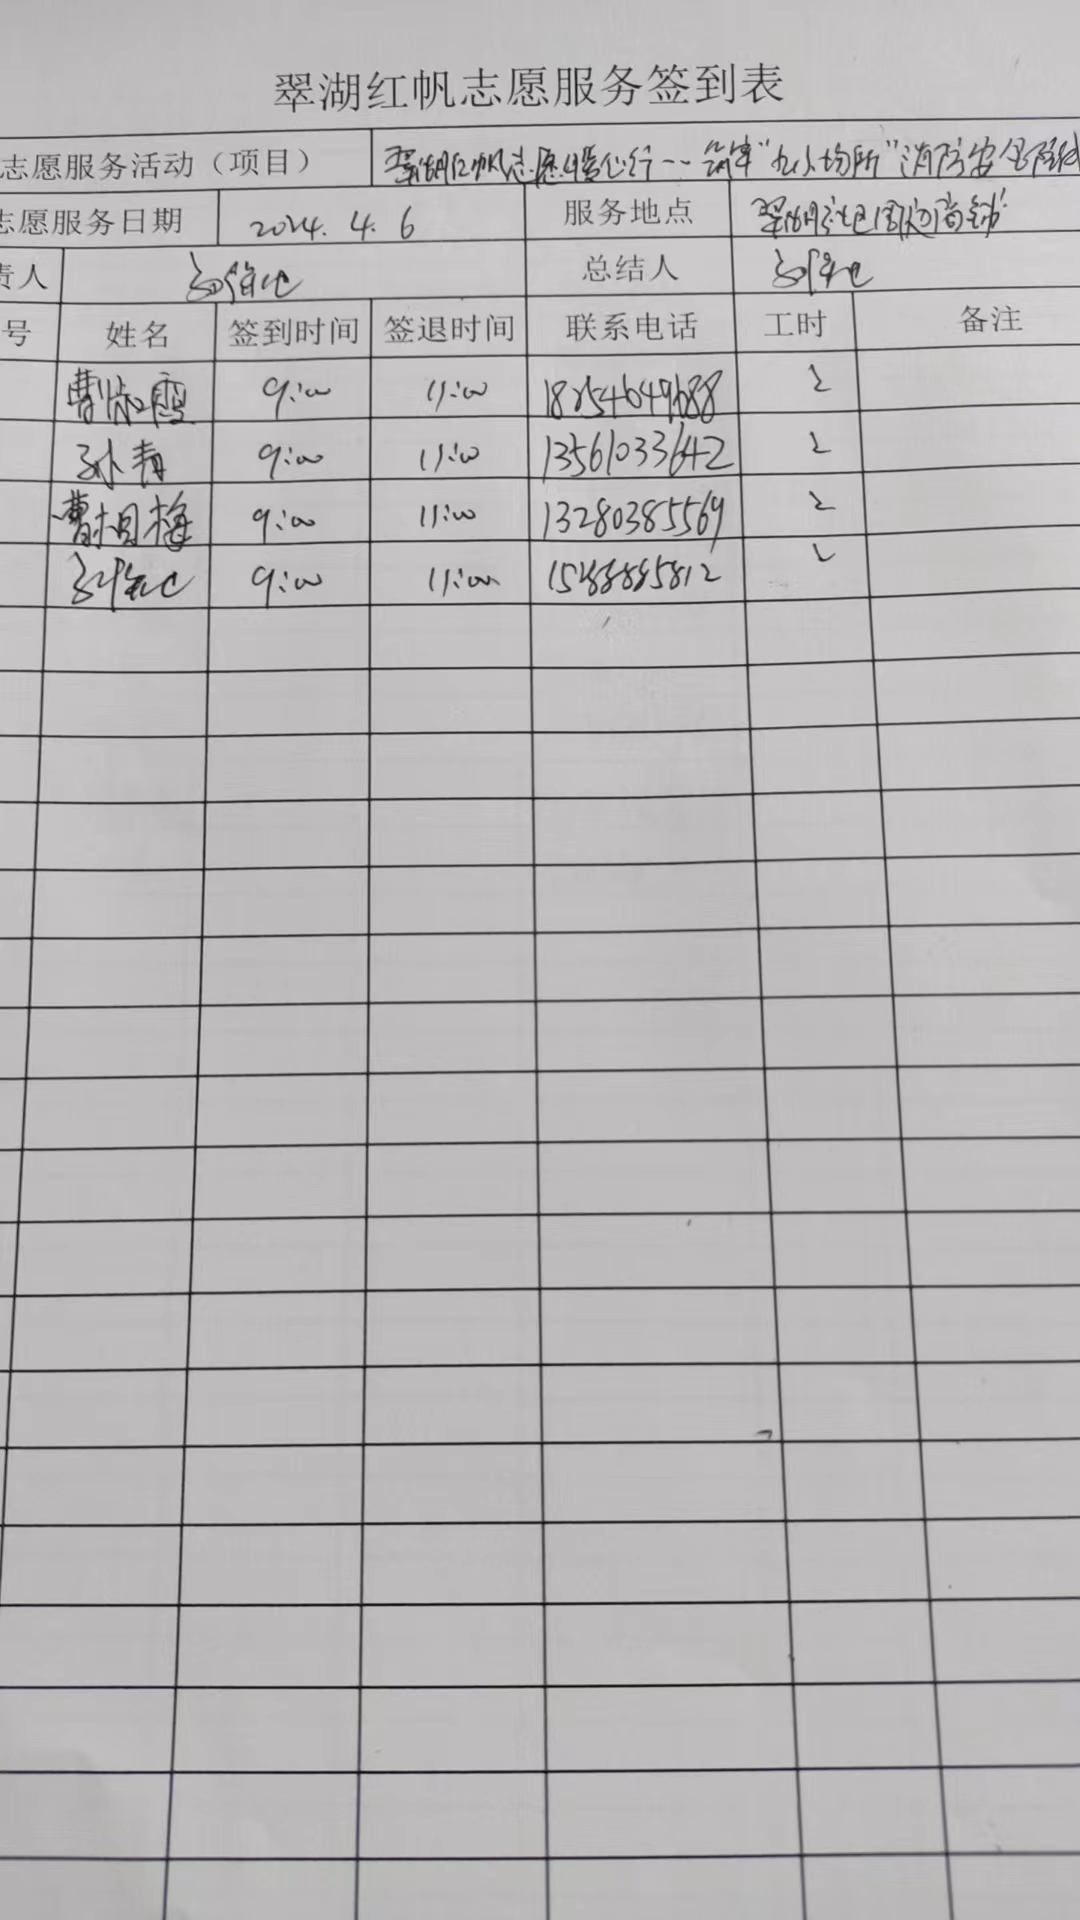 翠湖红帆志愿服务签到表
志愿服务活动（项目） 翠湖红帆志愿 行--筑牢"九小场所"消防安全防线
志愿服务日期 2024.4.6 服务地点 翠湖社区周边商铺
责人 总结人
号 姓名 签到时间 签退时间 联系电话 工时 备注
曹 霞 9:00 11:00 18254649688 2
孙青 9:00 11:00 13561033642 2
曹相梅 9:00 11:00 13280385569 2
9:00 11:00 2